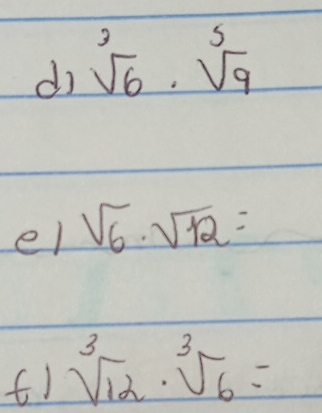 d) ³√6 . ⁵√9
e) √6 . √12 =
f) ³√12 . ³√6 =